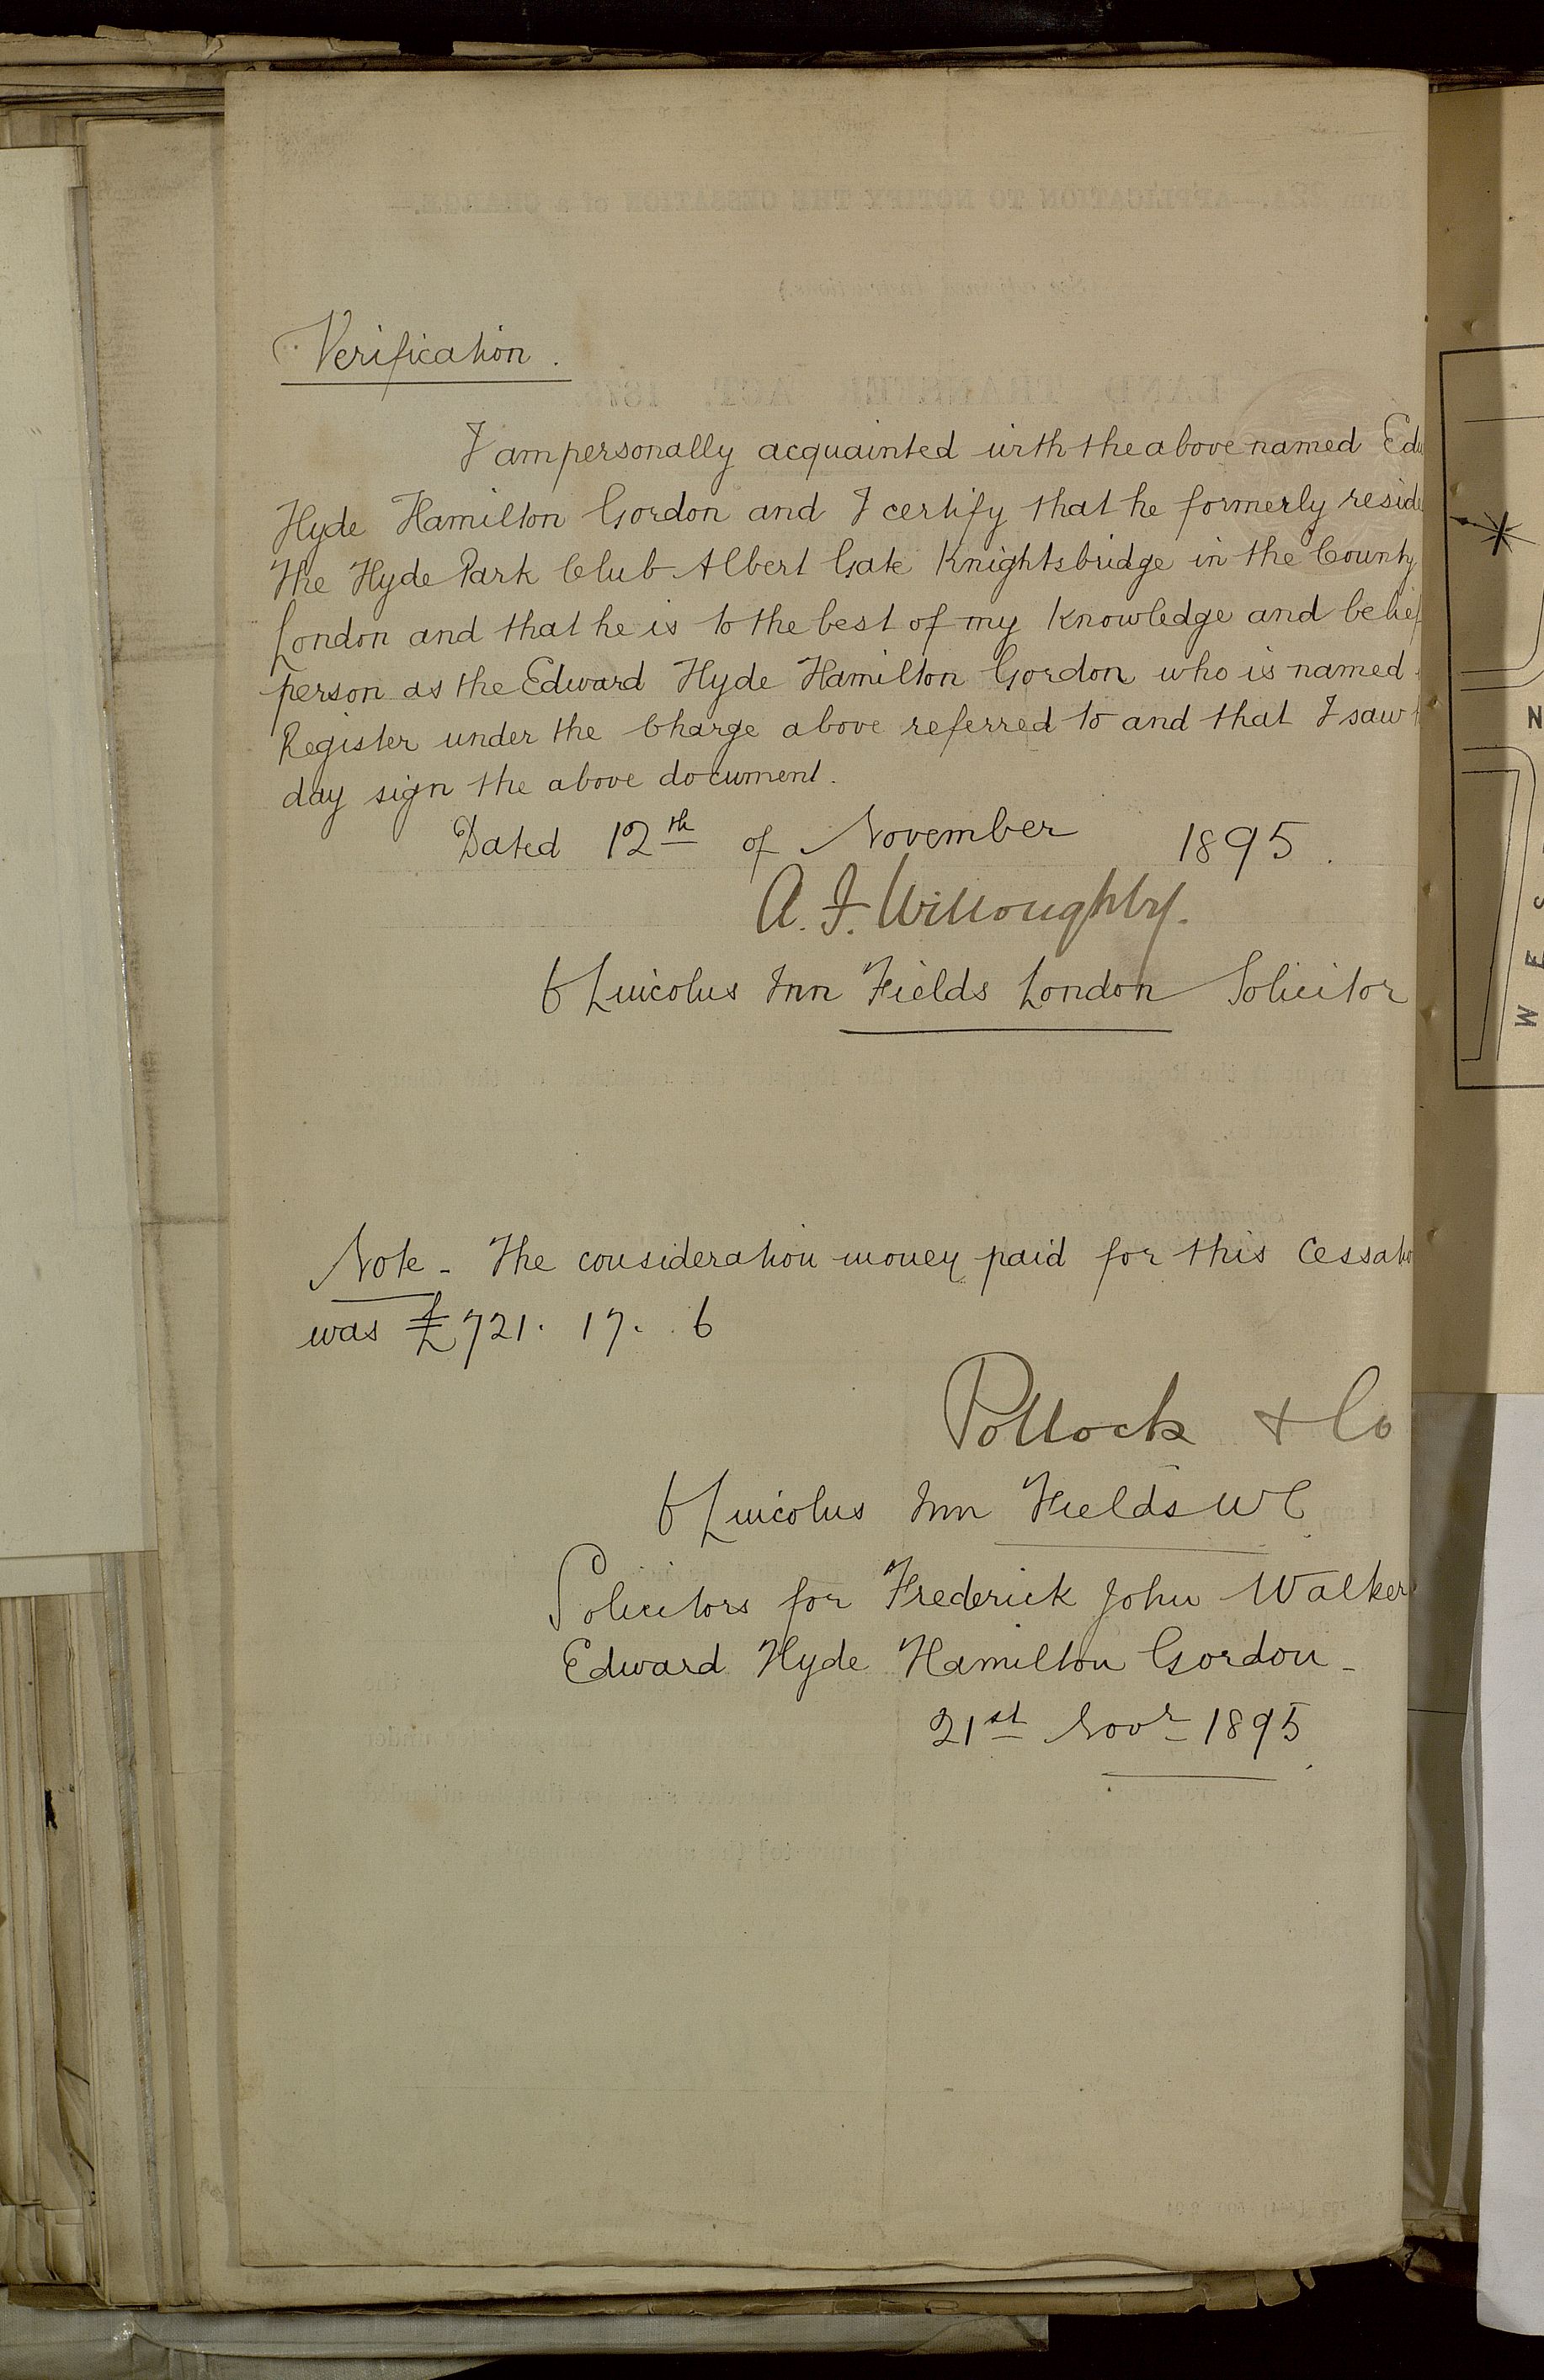 Verification.
I am personally acquainted with the above named Edw
Hyde Hamilton Gordon and I certify that he formerly resid
The Hyde Park Club Albert Gate Knightsbridge in the County
London and that he is to the best of my knowledge and belief
person as the Edward Hyde Hamilton Gordon who is named
Register under the Charge above referred to and that I saw
day sign the above document.
Dated 12th of November 1895.
A. F. Willoughby.
6 Lincolns Inn Fields London Solicitor
Note - The consideration money paid for this Cessatio
was £721. 17. 6
Pollock & Co
6 Lincolns Inn Fields WC
Solicitors for Frederick John Walker
Edward Hyde Hamilton Gordon -
21st Novr 1895.
N
W E S